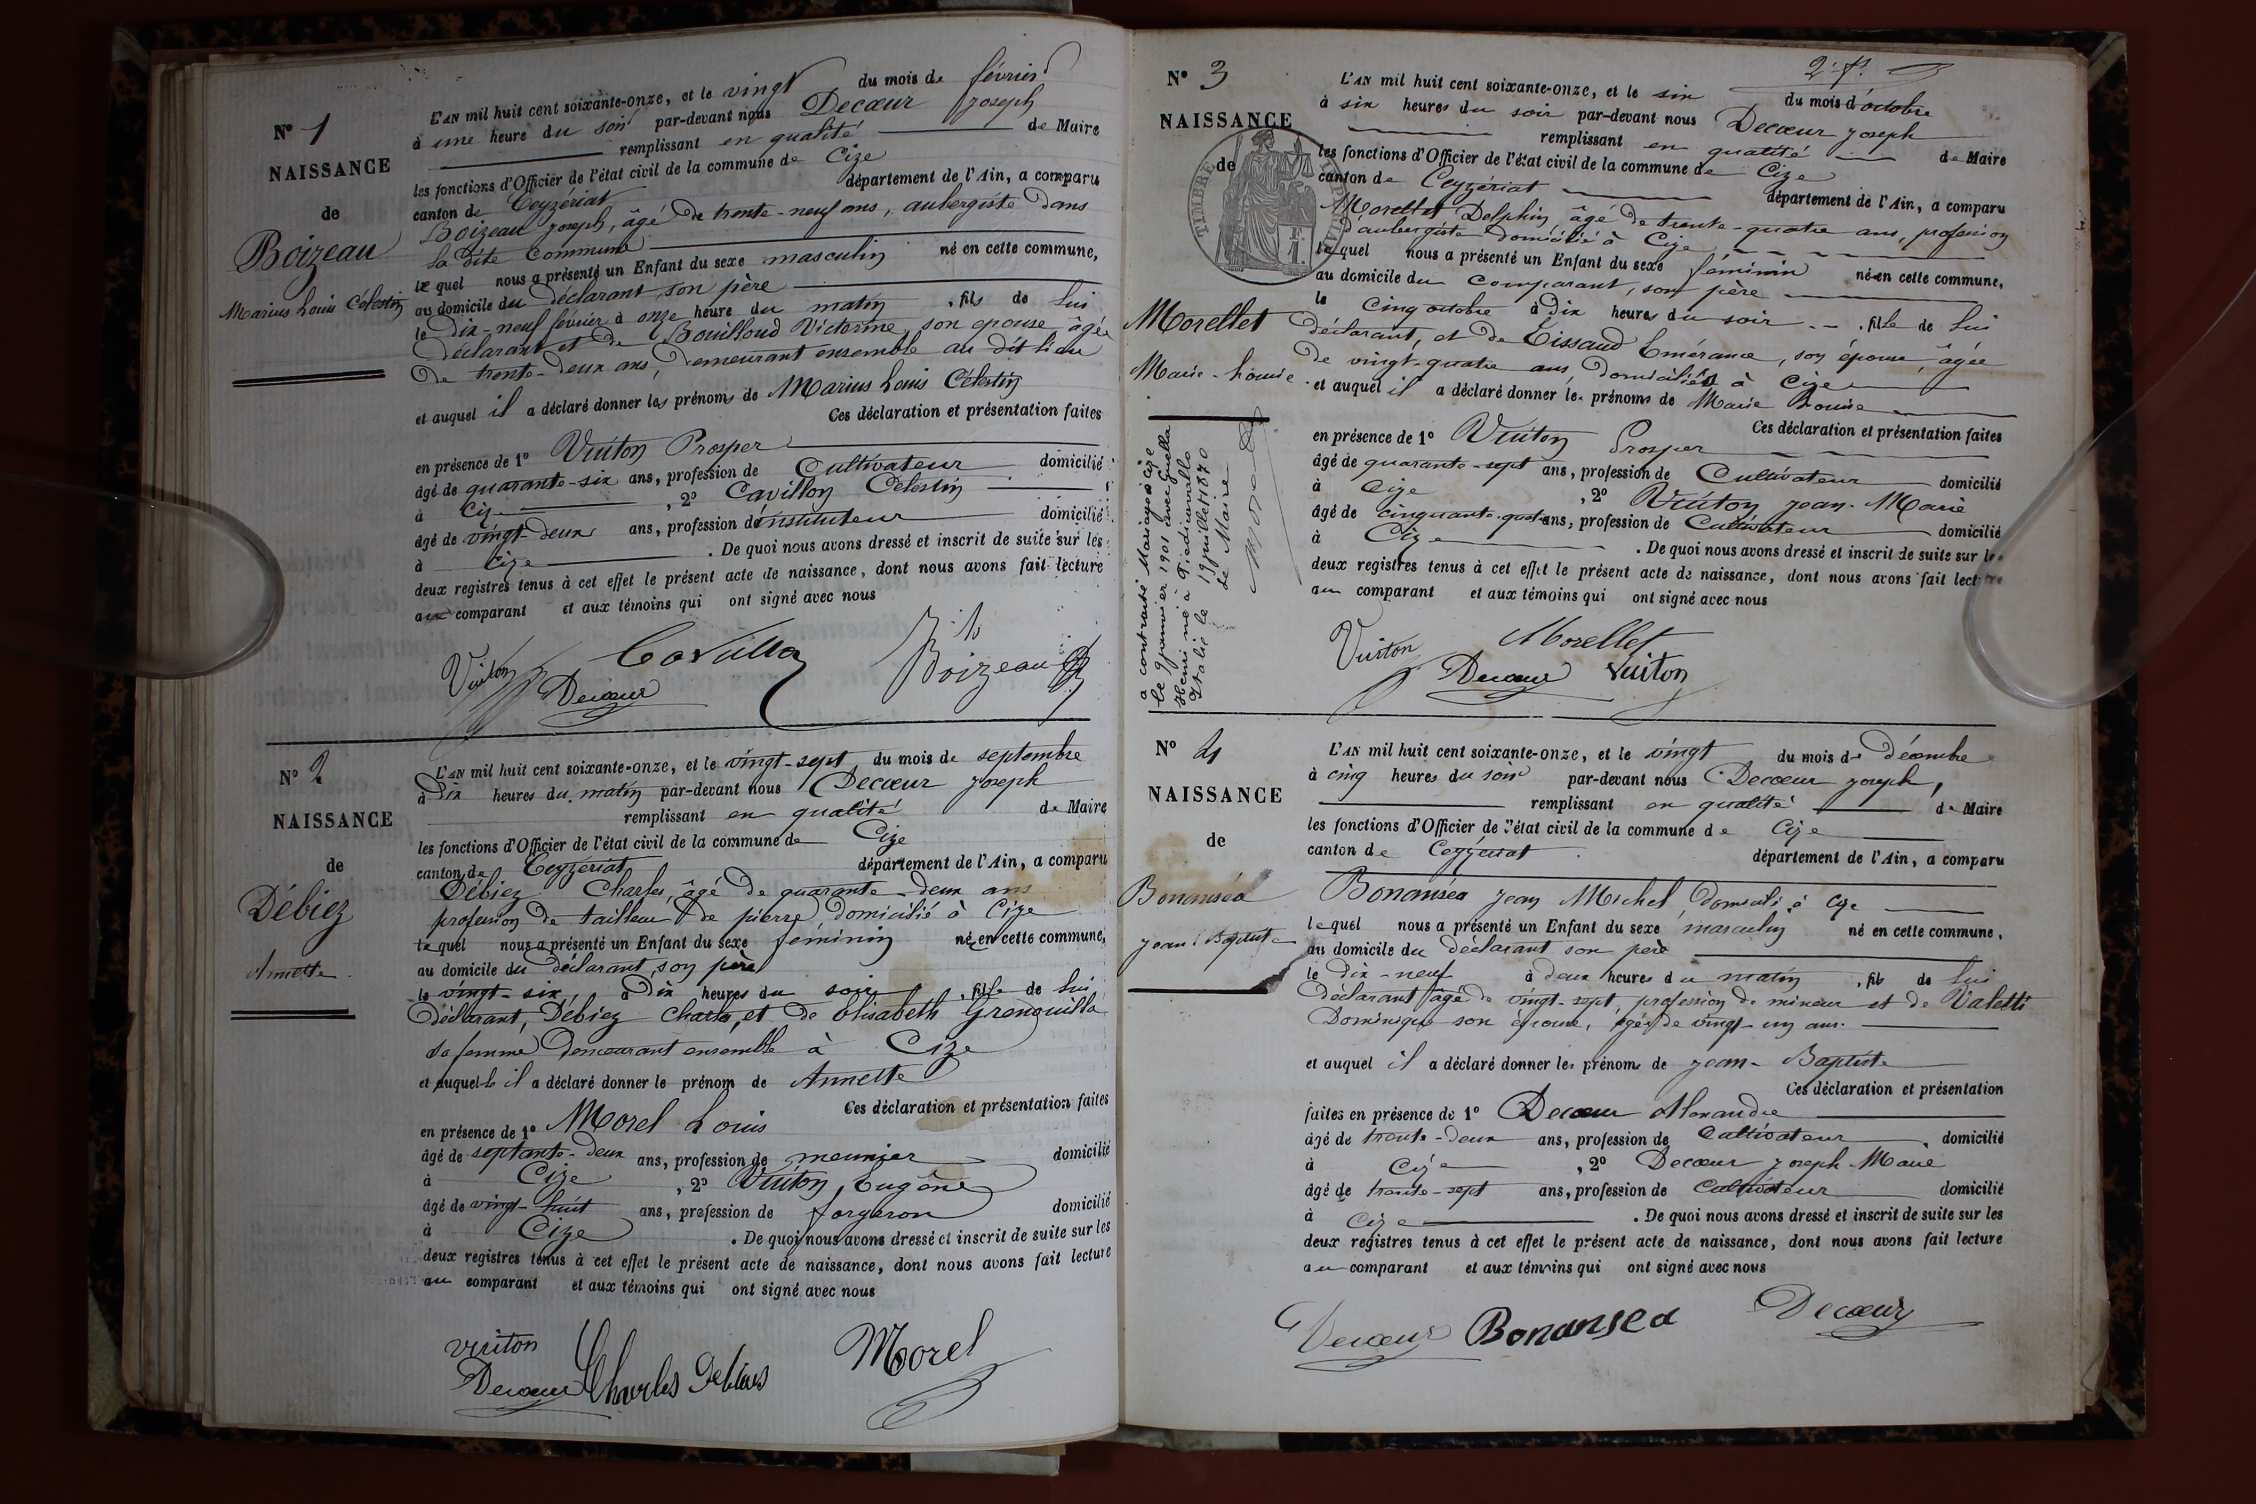 N° 1
NAISSANCE
de
Boizeau
Marius Louis Célestin
L'AN mil huit cent soixante-onze, et le vingt du mois de février
à une heure du soir par-devant nous Decœur Joseph
remplissant en qualité de Maire
les fonctions d'Officier de l'état civil de la commune de Cize
canton de Ceyzériat département de l'Ain, a comparu
Boizeau Joseph, âgé de trente-neuf ans, aubergiste dans
la dite commune
lequel nous a présenté un Enfant du sexe masculin né en cette commune,
au domicile du déclarant, son père
le dix-neuf février à onze heure du matin, fils de lui
déclarant et de Bouilloud Victorine, son epouse, âgée
de trente-deux ans, demeurant ensemble au dit lieu
et auquel il a déclaré donner les prénoms de Marius Louis Célestin
Ces déclaration et présentation faites
en présence de 1° Vuiton Prosper
âgé de quarante-six ans, profession de Cultivateur domicilié
à Cize, 2° Cavillon Célestin
âgé de vingt-deux ans, profession d'instituteur domicilié
à Cize. De quoi nous avons dressé et inscrit de suite sur les
deux registres tenus à cet effet le présent acte de naissance, dont nous avons fait lecture
au comparant et aux témoins qui ont signé avec nous
Vuiton Cavillon Boizeau
Decœur
N° 2
NAISSANCE
de
Débiez
Annette
L'AN mil huit cent soixante-onze, et le vingt-sept du mois de septembre
à dix heures du matin par-devant nous Decœur Joseph
remplissant en qualité de Maire
les fonctions d'Officier de l'état civil de la commune de Cize
canton de Ceyzériat département de l'Ain, a comparu
Débiez Charles, âgé de quarante-deux ans
profession de tailleur de pierre domicilié à Cize
lequel nous a présenté un Enfant du sexe féminin né en cette commune,
au domicile du déclarant, son père
le vingt-six, à dix heures du soir, fille de lui
déclarant, Débiez Charles, et de Elisabeth Grenouilla
sa femme demeurant ensemble à Cize
et auquel le il a déclaré donner le prénom de Annette
Ces déclaration et présentation faites
en présence de 1° Morel Louis
âgé de septante-deux ans, profession de meunier domicilié
à Cize, 2° Vuiton, Eugène
âgé de vingt-huit ans, profession de forgeron domicilié
à Cize. De quoi nous avons dressé et inscrit de suite sur les
deux registres tenus à cet effet le présent acte de naissance, dont nous avons fait lecture
au comparant et aux témoins qui ont signé avec nous
Vuiton
Decœur Charles Morel
2e f.
N° 3
NAISSANCE
de
TIMBRE
Morellet
Marie-Louise
a contracté Mariage à Cize
le 9 janvier 1901 avec Guella
Henri né à
Italie le 19 juillet 1870
Le Maire
L'AN mil huit cent soixante-onze, et le six du mois d'octobre
à six heures du soir par-devant nous Decœur Joseph
remplissant en qualité de Maire
les fonctions d'Officier de l'état civil de la commune de Cize
canton de Ceyzériat département de l'Ain, a comparu
Morellet Delphin âgé de trente-quatre ans, profession
d'aubergiste domicilié à Cize
lequel nous a présenté un Enfant du sexe féminin né en cette commune,
au domicile du comparant, son père
le cinq octobre à dix heures du soir, fille de lui
déclarant, et de Tissaud Emérance, son épouse, âgée
de vingt-quatre ans, domiciliés à Cize
et auquel il a déclaré donner les prénoms de Marie Louise
Ces déclaration et présentation faites
en présence de 1° Vuiton Prosper
âgé de quarante-sept ans, profession de Cultivateur domicilié
à Cize, 2° Vuiton Jean-Marie
âgé de cinquante-quatre ans, profession de Cultivateur domicilié
à Cize. De quoi nous avons dressé et inscrit de suite sur les
deux registres tenus à cet effet le présent acte de naissance, dont nous avons fait lecture
au comparant et aux témoins qui ont signé avec nous
Vuiton Morellet
Decœur Vuiton
N° 4
NAISSANCE
de
Bonanséa
Jean Baptiste
L'AN mil huit cent soixante-onze, et le vingt du mois de décembre
à cinq heures du soir par-devant nous Decœur Joseph,
remplissant en qualité de Maire
les fonctions d'Officier de l'état civil de la commune de Cize
canton de Ceyzériat département de l'Ain, a comparu
Bonanséa Jean Michel, domicilié à Cize
lequel nous a présenté un Enfant du sexe masculin né en cette commune,
au domicile du déclarant son père
le dix-neuf à deux heures du matin, fils de lui
déclarant âgé de vingt-sept, profession de mineur et de Valetti
Dominique son épouse, âgée de vingt-un ans.
et auquel il a déclaré donner les prénoms de Jean-Baptiste
Ces déclaration et présentation
faites en présence de 1° Decœur Alexandre
âgé de trente-deux ans, profession de Cultivateur domicilié
à Cize, 2° Decœur Joseph-Marie
âgé de trente-sept ans, profession de Cultivateur domicilié
à Cize. De quoi nous avons dressé et inscrit de suite sur les
deux registres tenus à cet effet le présent acte de naissance, dont nous avons fait lecture
au comparant et aux témoins qui ont signé avec nous
Decœur Bonansea Decœur